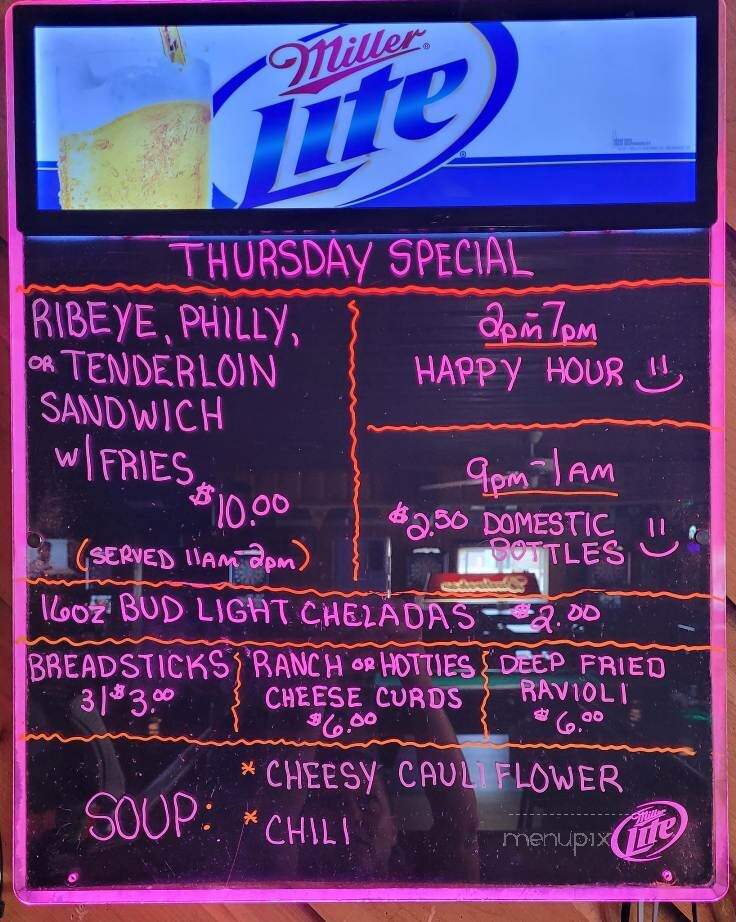 Miller
Lite
THURSDAY SPECIAL
RIBEYE, PHILLY,
OR TENDERLOIN
SANDWICH
W/ FRIES
$10.00
(SERVED 11AM-2pm)
2pm-7pm
HAPPY HOUR
9pm-1AM
$2.50 DOMESTIC
BOTTLES
16oz BUD LIGHT CHELADAS $2.00
BREADSTICKS
3/$3.00
RANCH OR HOTTIES
CHEESE CURDS
$6.00
DEEP FRIED
RAVIOLI
$6.00
SOUP:
* CHEESY CAULIFLOWER
* CHILI
menupix
Miller
Lite